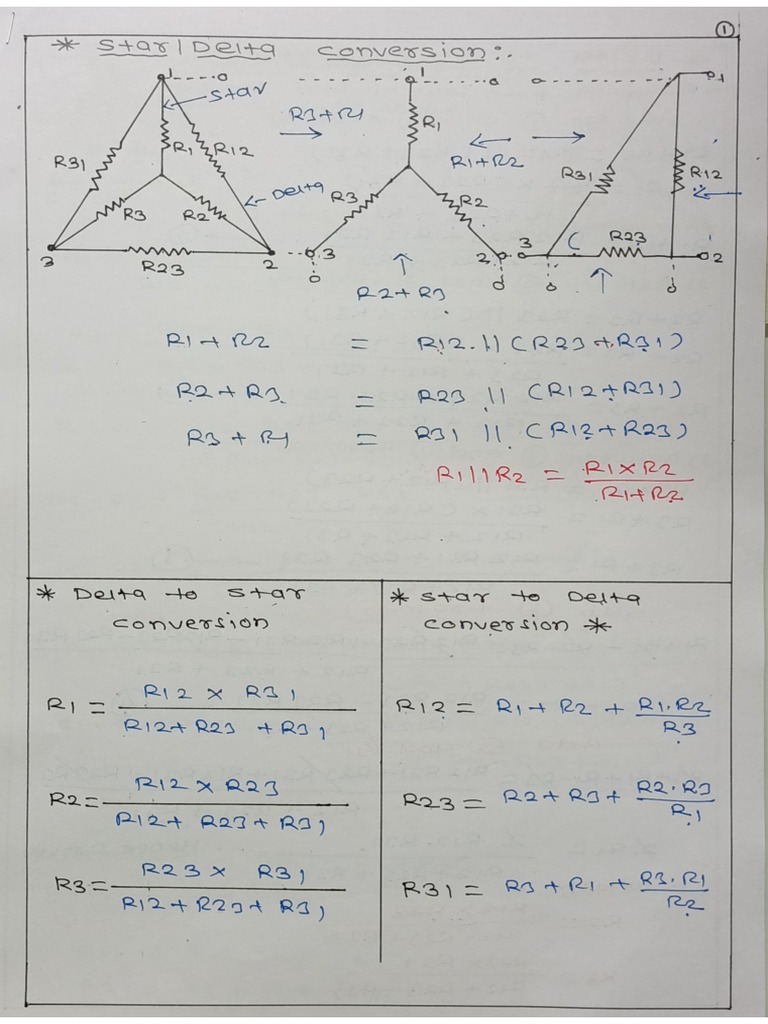 ①
* Star/Delta conversion:.
1 1 1
Star
R3+R1
R1 R12 R1 R1+R2 R31 R12
R31
R3 R2 Delta R3 R2
3 R23 2 3 2 3 C R23 2
R2+R3
R1 + R2 = R12 || (R23+R31)
R2 + R3 = R23 || (R12+R31)
R3 + R1 = R31 || (R12+R23)
R1||R2 = R1×R2 / R1+R2
* Delta to Star
conversion
R1 = R12 × R31 / R12+R23+R31
R2 = R12 × R23 / R12+R23+R31
R3 = R23 × R31 / R12+R23+R31
* Star to Delta
conversion *
R12 = R1 + R2 + R1.R2 / R3
R23 = R2 + R3 + R2.R3 / R1
R31 = R3 + R1 + R3.R1 / R2